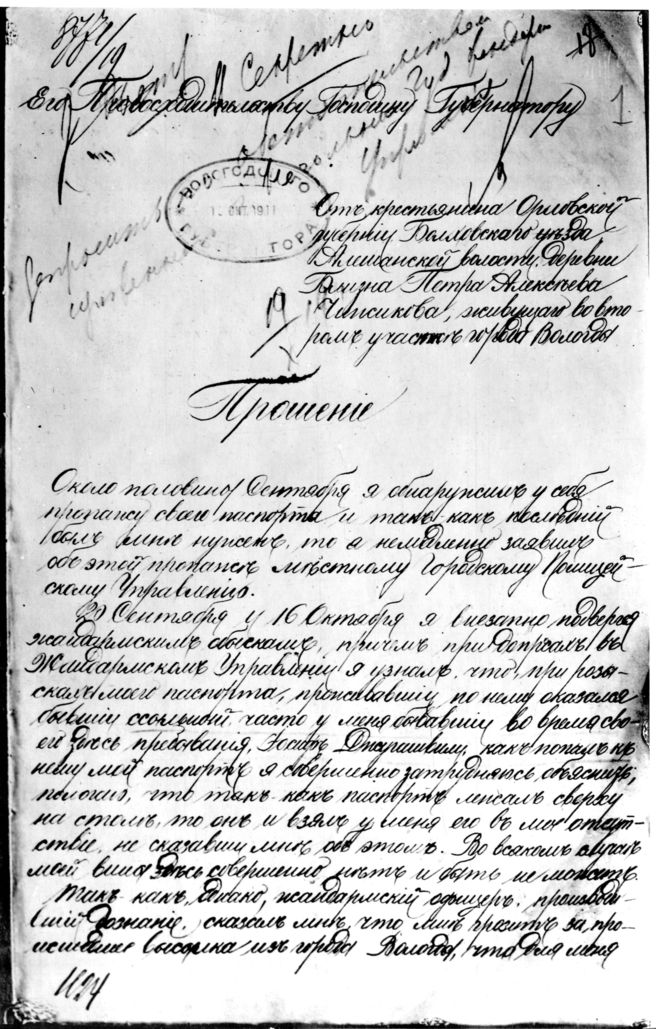 8771/19
18
1
Секретно
Его Превосходительству Господину Губернатору
ВОЛОГОДСКАГО
ОКТ. 1911
Отъ крестьянина Орловской
губерніи Болховскаго уѣзда
волости, деревни
Петра Алексѣева
Чижикова, живущаго во вто-
ромъ участкѣ города Вологды
19/X
Прошеніе
Около половины Сентября я обнаружилъ у себя
пропажу своего паспорта и такъ какъ послѣдній
былъ мнѣ нуженъ, то я немедленно заявилъ
объ этой пропажѣ мѣстному Городскому Полицей-
скому Управленію.
Сентября и 16 Октября я внезапно подвергся
жандармскимъ обыскамъ, причемъ при допросахъ въ
Жандармскомъ Управленіи я узналъ, что, при розы-
скахъ моего паспорта, проживавшій по нему оказался
бывшій ссыльный, часто у меня бывавшій во время сво-
его здѣсь пребыванія, Іосифъ Джугашвили, какъ попалъ къ
нему мой паспортъ я совершенно затрудняюсь объяснить,
полагаю, что такъ какъ паспортъ лежалъ сверху
на столѣ, то онъ и взялъ у меня его въ мое отсут-
ствіе, не сказавши мнѣ объ этомъ. Во всякомъ случаѣ
моей вины здѣсь совершенно нѣтъ и быть не можетъ.
Такъ какъ, однако, жандармскій офицеръ, производи-
вшій дознаніе, сказалъ мнѣ, что мнѣ грозитъ за про-
высылка изъ города Вологды, что для меня
1624